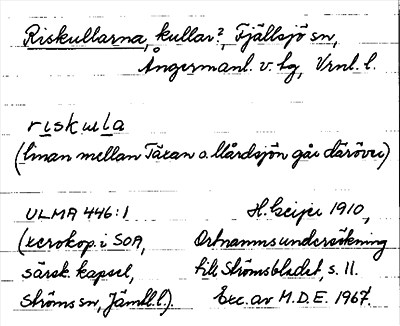 Riskullarna, kullar?, Fjällsjö sn,
Ångermanl. v. bg, Vrnl. l.
riskula
(linan mellan Täxan o. Vårdsjön går däröver)
ULMA 446:1 H. Geijer 1910,
(xerokop. i SOA, Ortnamnsundersökning
särsk. kapsel, till Strömsbladet, s. 11.
Ströms sn, Jämtl. l.). Exc. av M.D.E. 1967.